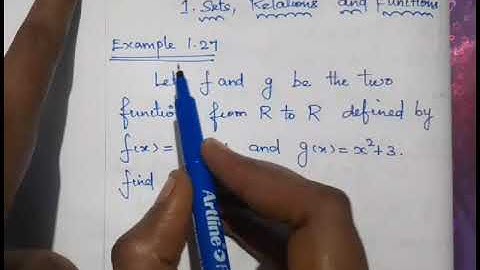 1. Sets, Relations and Functions
Example 1.27
Let f and g be the two
from R to R defined by
f(x) = and g(x) = x²+3.
find
Artline